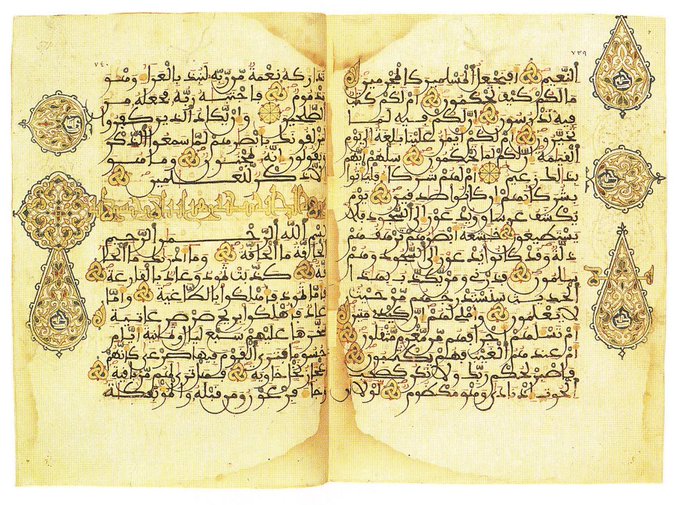 ٧٣٩
النعيم افنجعل المسلمين كالمجرمين
ما لكم كيف تحكمون ام لكم كتب
فيه تدرسون ان لكم فيه لما
تخيرون ام لكم ايمن علينا بلغة الى يوم
القيمة ان لكم لما تحكمون سلهم ايهم
بذلك زعيم ام لهم شركاء فلياتوا
بشركائهم ان كانوا صدقين يوم
يكشف عن ساق ويدعون الى السجود فلا
يستطيعون خشعة ابصرهم ترهقهم
ذلة وقد كانوا يدعون الى السجود وهم
سلمون فذرني ومن يكذب بهذا
الحديث سنستدرجهم من حيث
لا يعلمون واملي لهم ان كيدي متين
ام تسئلهم اجرا فهم من مغرم مثقلون
ام عندهم الغيب فهم يكتبون
فاصبر لحكم ربك ولا تكن كصاحب
الحوت اذ نادى وهو مكظوم لولا ان
٧٤٠
تدركه نعمة من ربه لنبذ بالعراء وهو
مذموم فاجتبه ربه فجعله من
الصلحين وان يكاد الذين كفروا
ليزلقونك بابصرهم لما سمعوا الذكر
ويقولون انه لمجنون وما هو
الا ذكر للعلمين
بسم الله الرحمن الرحيم
الحاقة ما الحاقة وما ادريك ما
الحاقة كذبت ثمود وعاد بالقارعة
فاما ثمود فاهلكوا بالطاغية واما
عاد فاهلكوا بريح صرصر عاتية
سخرها عليهم سبع ليال وثمنية ايام
حسوما فترى القوم فيها صرعى كانهم
اعجاز نخل خاوية فهل ترى لهم من باقية
وجاء فرعون ومن قبله والموتفكت